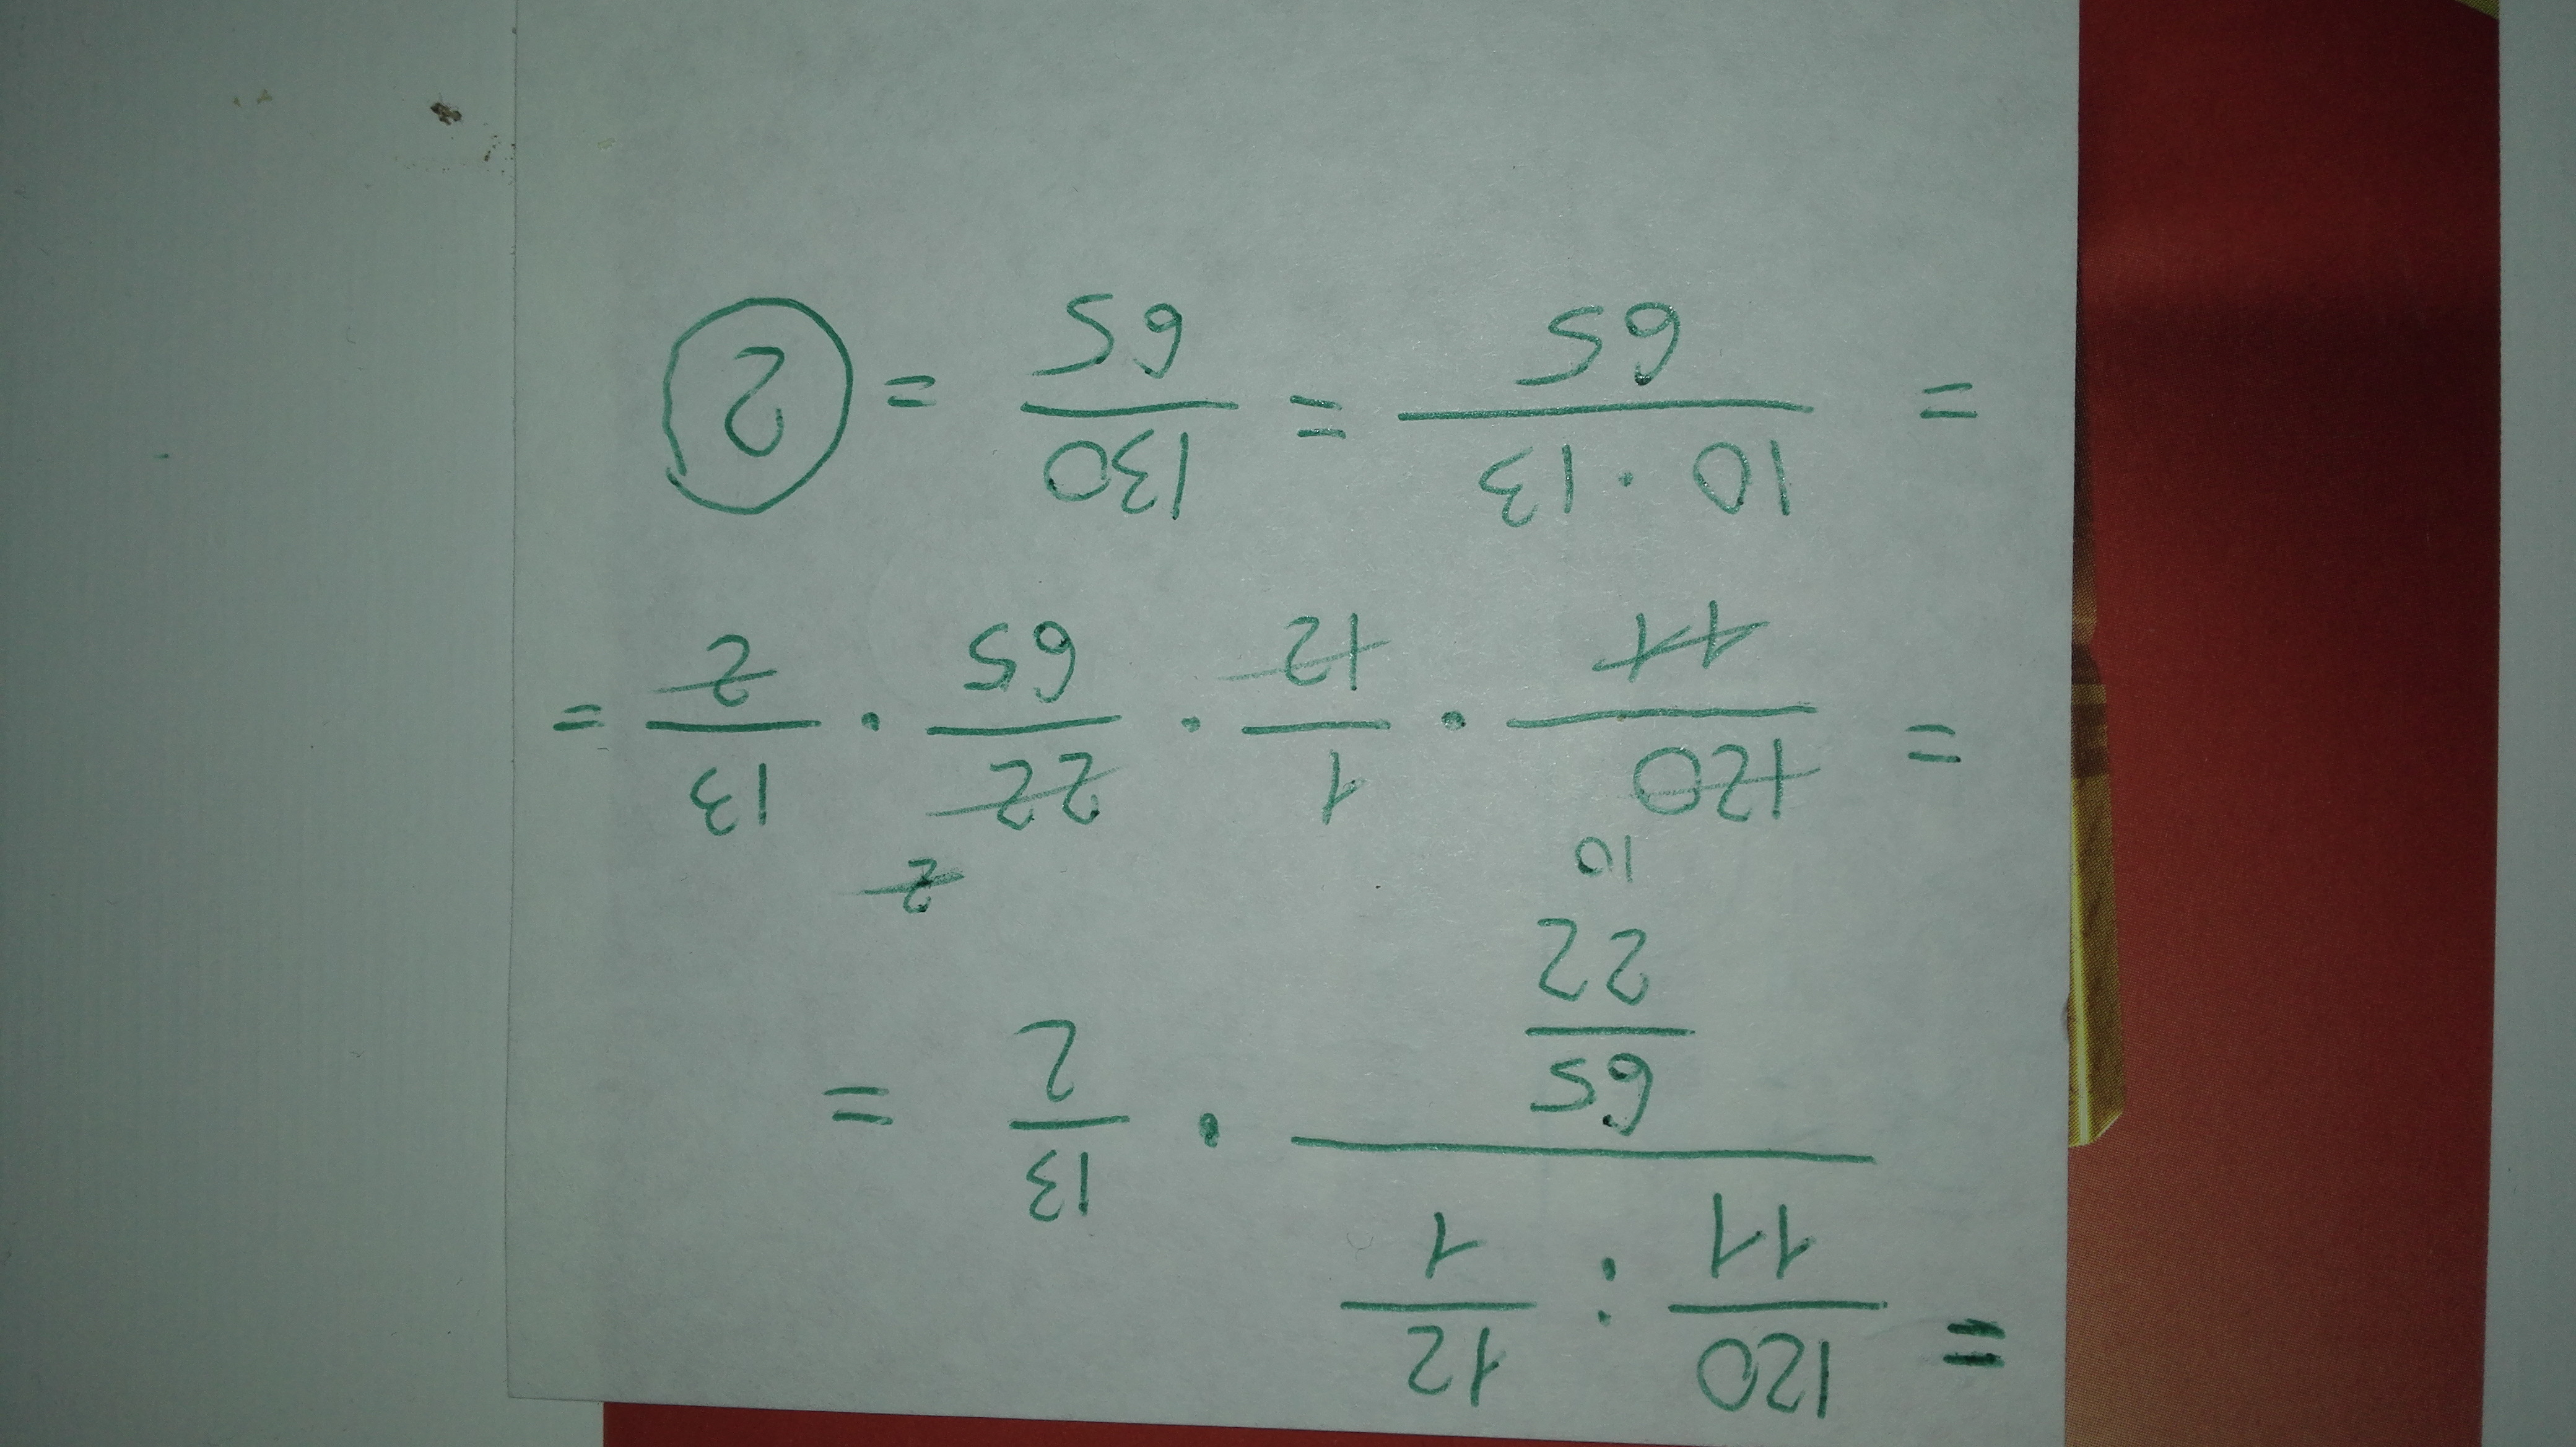 = 120/11 : 12/1
65/22 · 13/2 =
10 2
= 120/11 · 1/12 · 22/65 · 13/2 =
= 10 · 13/65 = 130/65 = 2